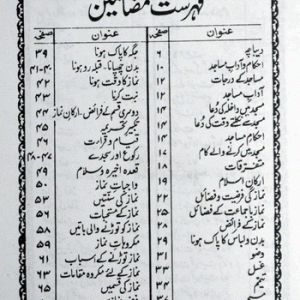 فہرست مضامین
عنوان صفحہ
دیباچہ ۶
احکام و آداب مساجد ۱۰
مساجد کے درجات ۱۲
آداب مساجد ۱۲
مسجد میں داخلہ کی دعا ۱۴
مسجد سے نکلتے وقت کی دعا ۱۴
احکام مسجد ۱۴
مسجد میں کرنے والے کام
متفرقات ۱۸
ارکان اسلام ۱۹
نماز کی فرضیت و فضائل ۲۲
نماز باجماعت کے فضائل ۲۵
بدن و لباس کا پاک ہونا
وضو ۳۱
غسل
تیمم
عنوان صفحہ
جگہ کا پاک ہونا ۳۹
بدن چھپانا - قبلہ رو ہونا ۴۰-۴۱
نماز کا وقت ہونا ۴۲
نیت کرنا ۴۳
دوسری قسم کے فرائض - ارکان نماز ۴۴
تکبیر تحریمہ ۴۵
قیام و قرارت ۴۶
رکوع اور سجدے ۴۷-۴۸
قعدہ اخیرہ و سلام ۴۹
واجبات نماز ۵۰
نماز کی سنتیں ۵۳
نماز کے مستحبات ۵۶
نماز کو توڑنے والی باتیں ۵۷
مکروہات نماز ۵۹
نماز کو توڑنے کے اسباب ۶۱
نماز کے لئے مکروہ مقامات ۶۳
نماز کی قسمیں ۶۵